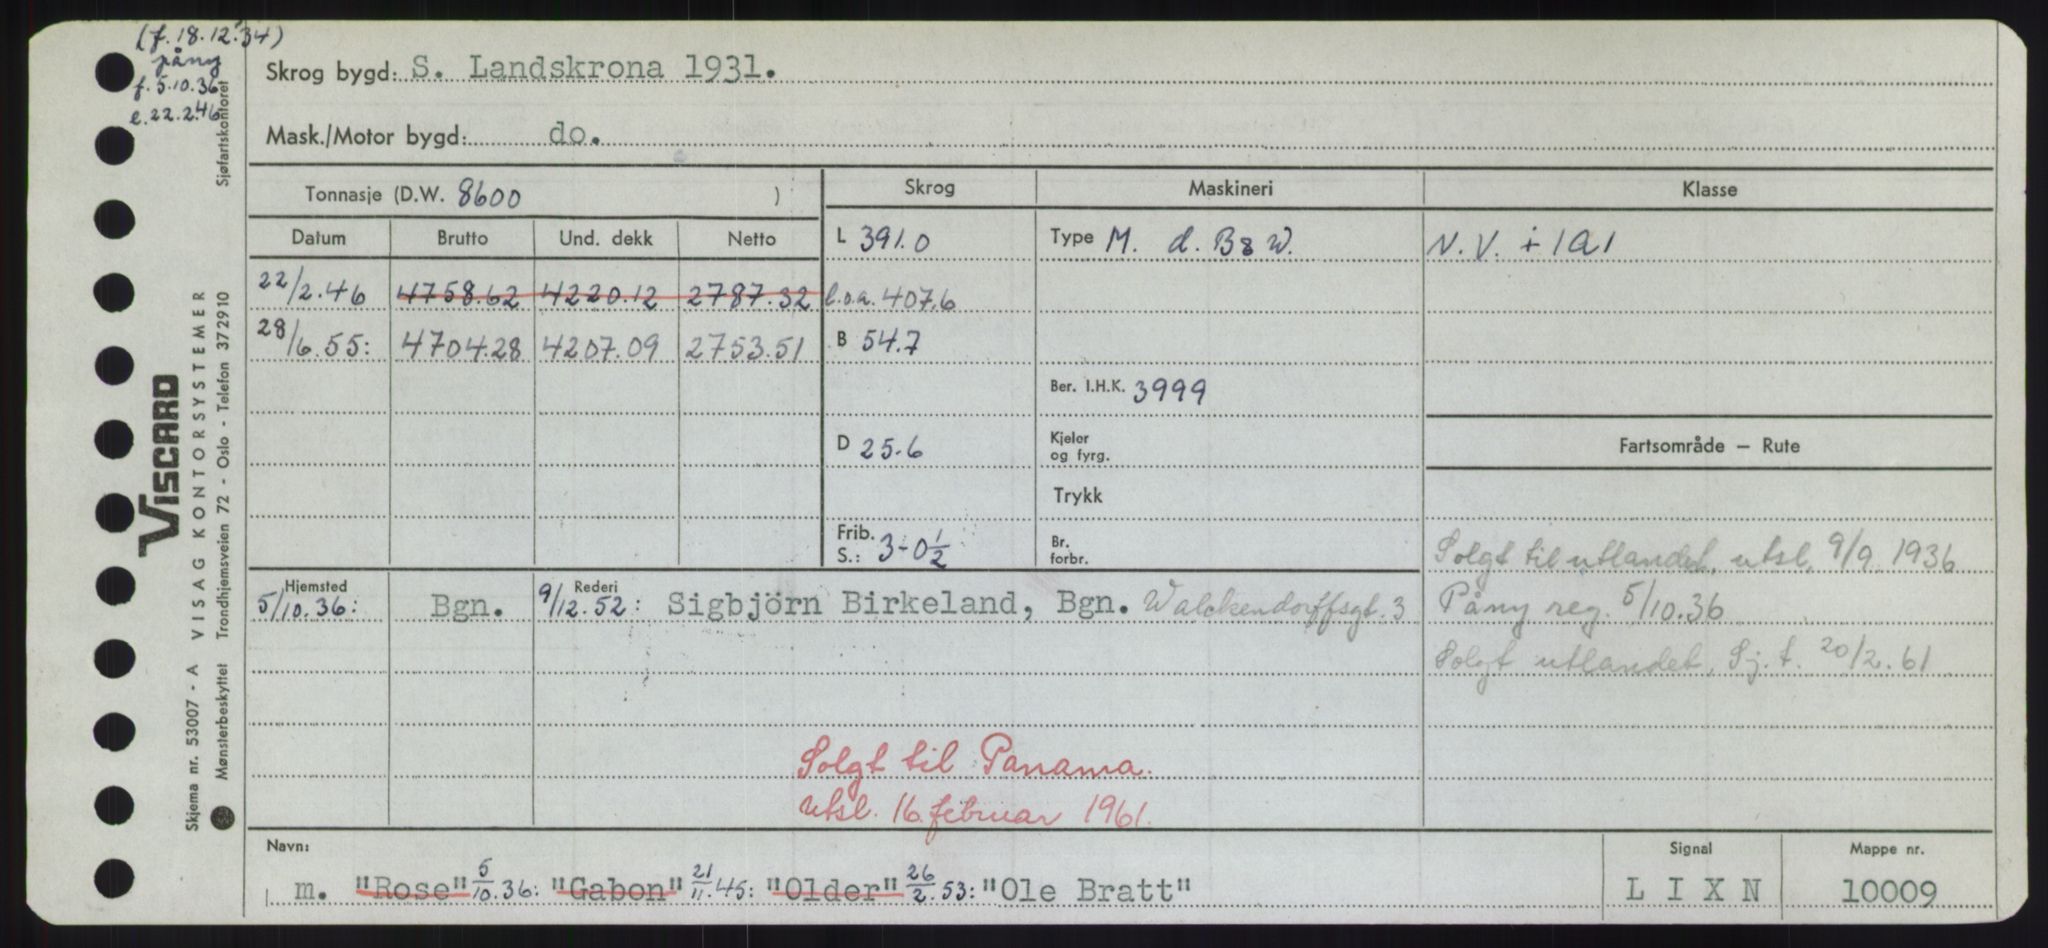 (f. 18.12.34)
påny
f. 5.10.36
e. 22.2.46
Skrog bygd: S. Landskrona 1931.
Mask./Motor bygd: do.
Tonnasje (D.W. 8600 )
Skrog Maskineri Klasse
Datum Brutto Und. dekk Netto
L 391.0 Type M. d. B & W. N.V. + 1A1
22/2.46 4758.62 4220.12 2787.32 l.o.a. 407.6
28/6.55: 4704.28 4207.09 2753.51 B 54.7
Ber. I.H.K. 3999
D 25.6 Kjeler og fyrg. Fartsområde — Rute
Trykk
Frib. S.: 3-0½ Br. forbr. Solgt til utlandet, utsl. 9/9 1936
Hjemsted Rederi
5/10.36: Bgn. 9/12.52: Sigbjörn Birkeland, Bgn. Walckendorffsgt. 3 Påny reg. 5/10.36
Solgt utlandet, Sj.t. 20/2.61
Solgt til Panama.
utsl. 16. februar 1961.
Navn: Signal Mappe nr.
m. "Rose" 5/10.36: "Gabon" 21/11.45: "Older" 26/2.53: "Ole Bratt" L I X N 10009
VISCARD
VISAG KONTORSYSTEMER
Skjema nr. 53007 - A
Mønsterbeskyttet Trondhjemsveien 72 - Oslo - Telefon 372910
Sjøfartskontoret